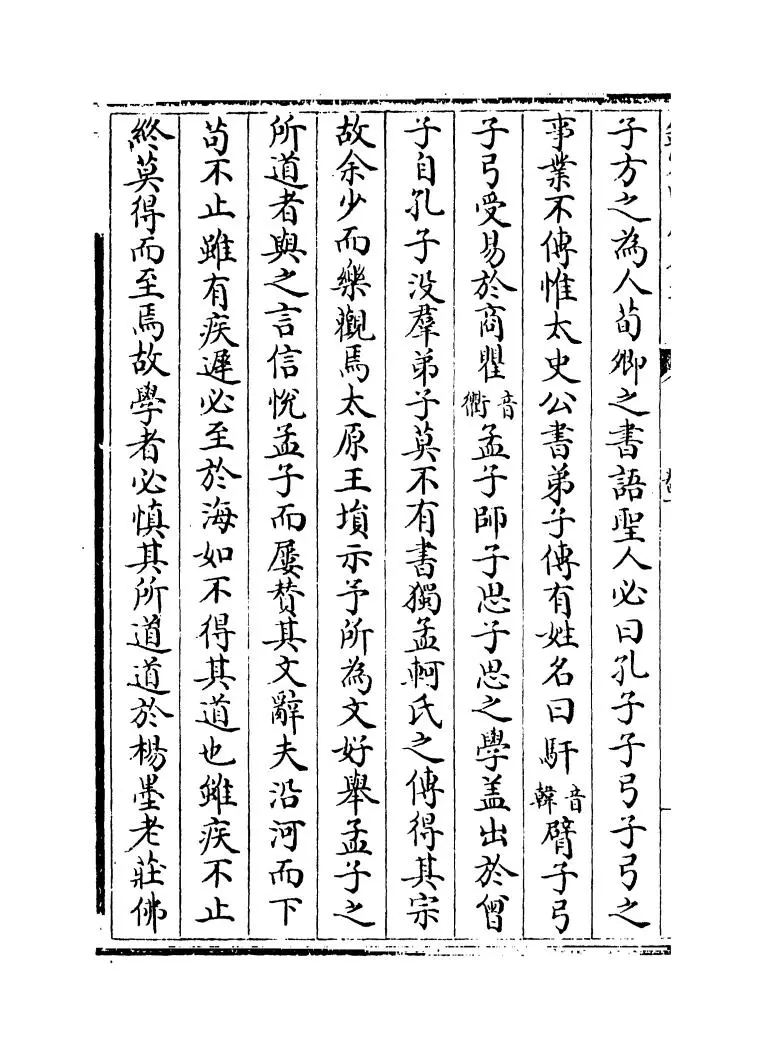 子方之為人荀卿之書語聖人必曰孔子子弓子弓之
事業不傳惟太史公書弟子傳有姓名曰馯音韓臂子弓
子弓受易於商瞿音衢孟子師子思子思之學盖出於曾
子自孔子没羣弟子莫不有書獨孟軻氏之傳得其宗
故余少而樂觀焉太原王塤示予所為文好舉孟子之
所道者與之言信悅孟子而屡賛其文辭夫沿河而下
茍不止雖有疾遲必至於海如不得其道也雖疾不止
終莫得而至焉故學者必慎其所道道於楊墨老莊佛